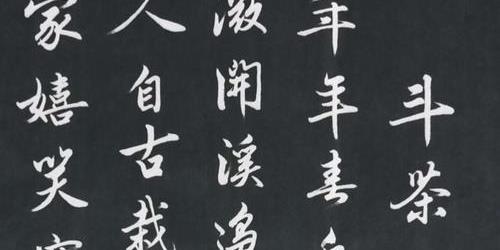 斗茶
年年春
微開溪邊
人自古栽
家嬉笑